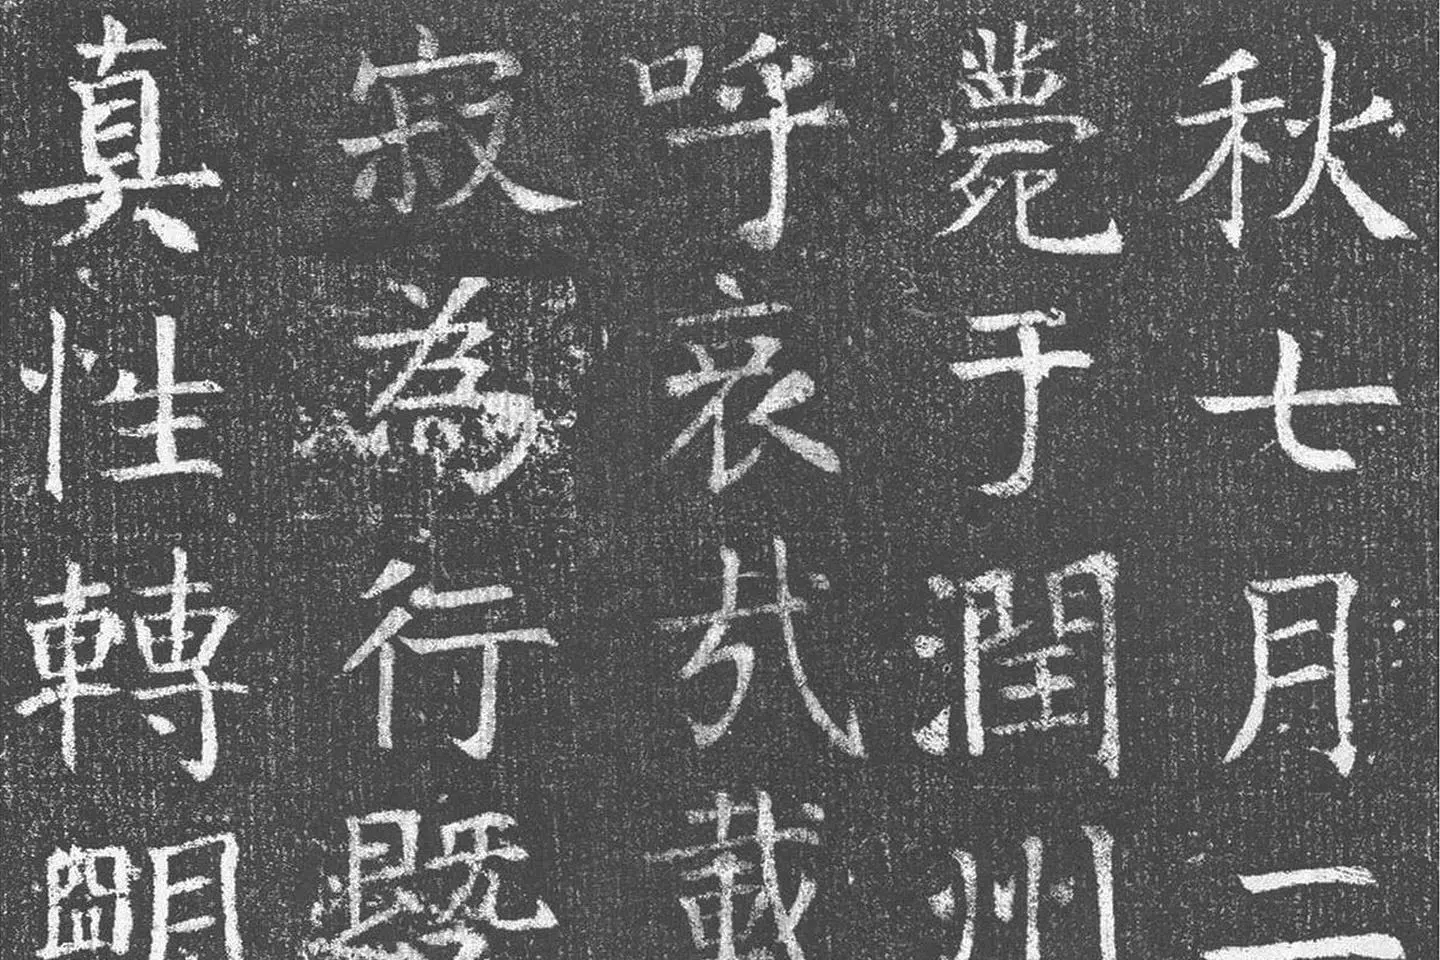 秋七月二
薨于潤州
呼哀哉載
寂為行
真性轉明